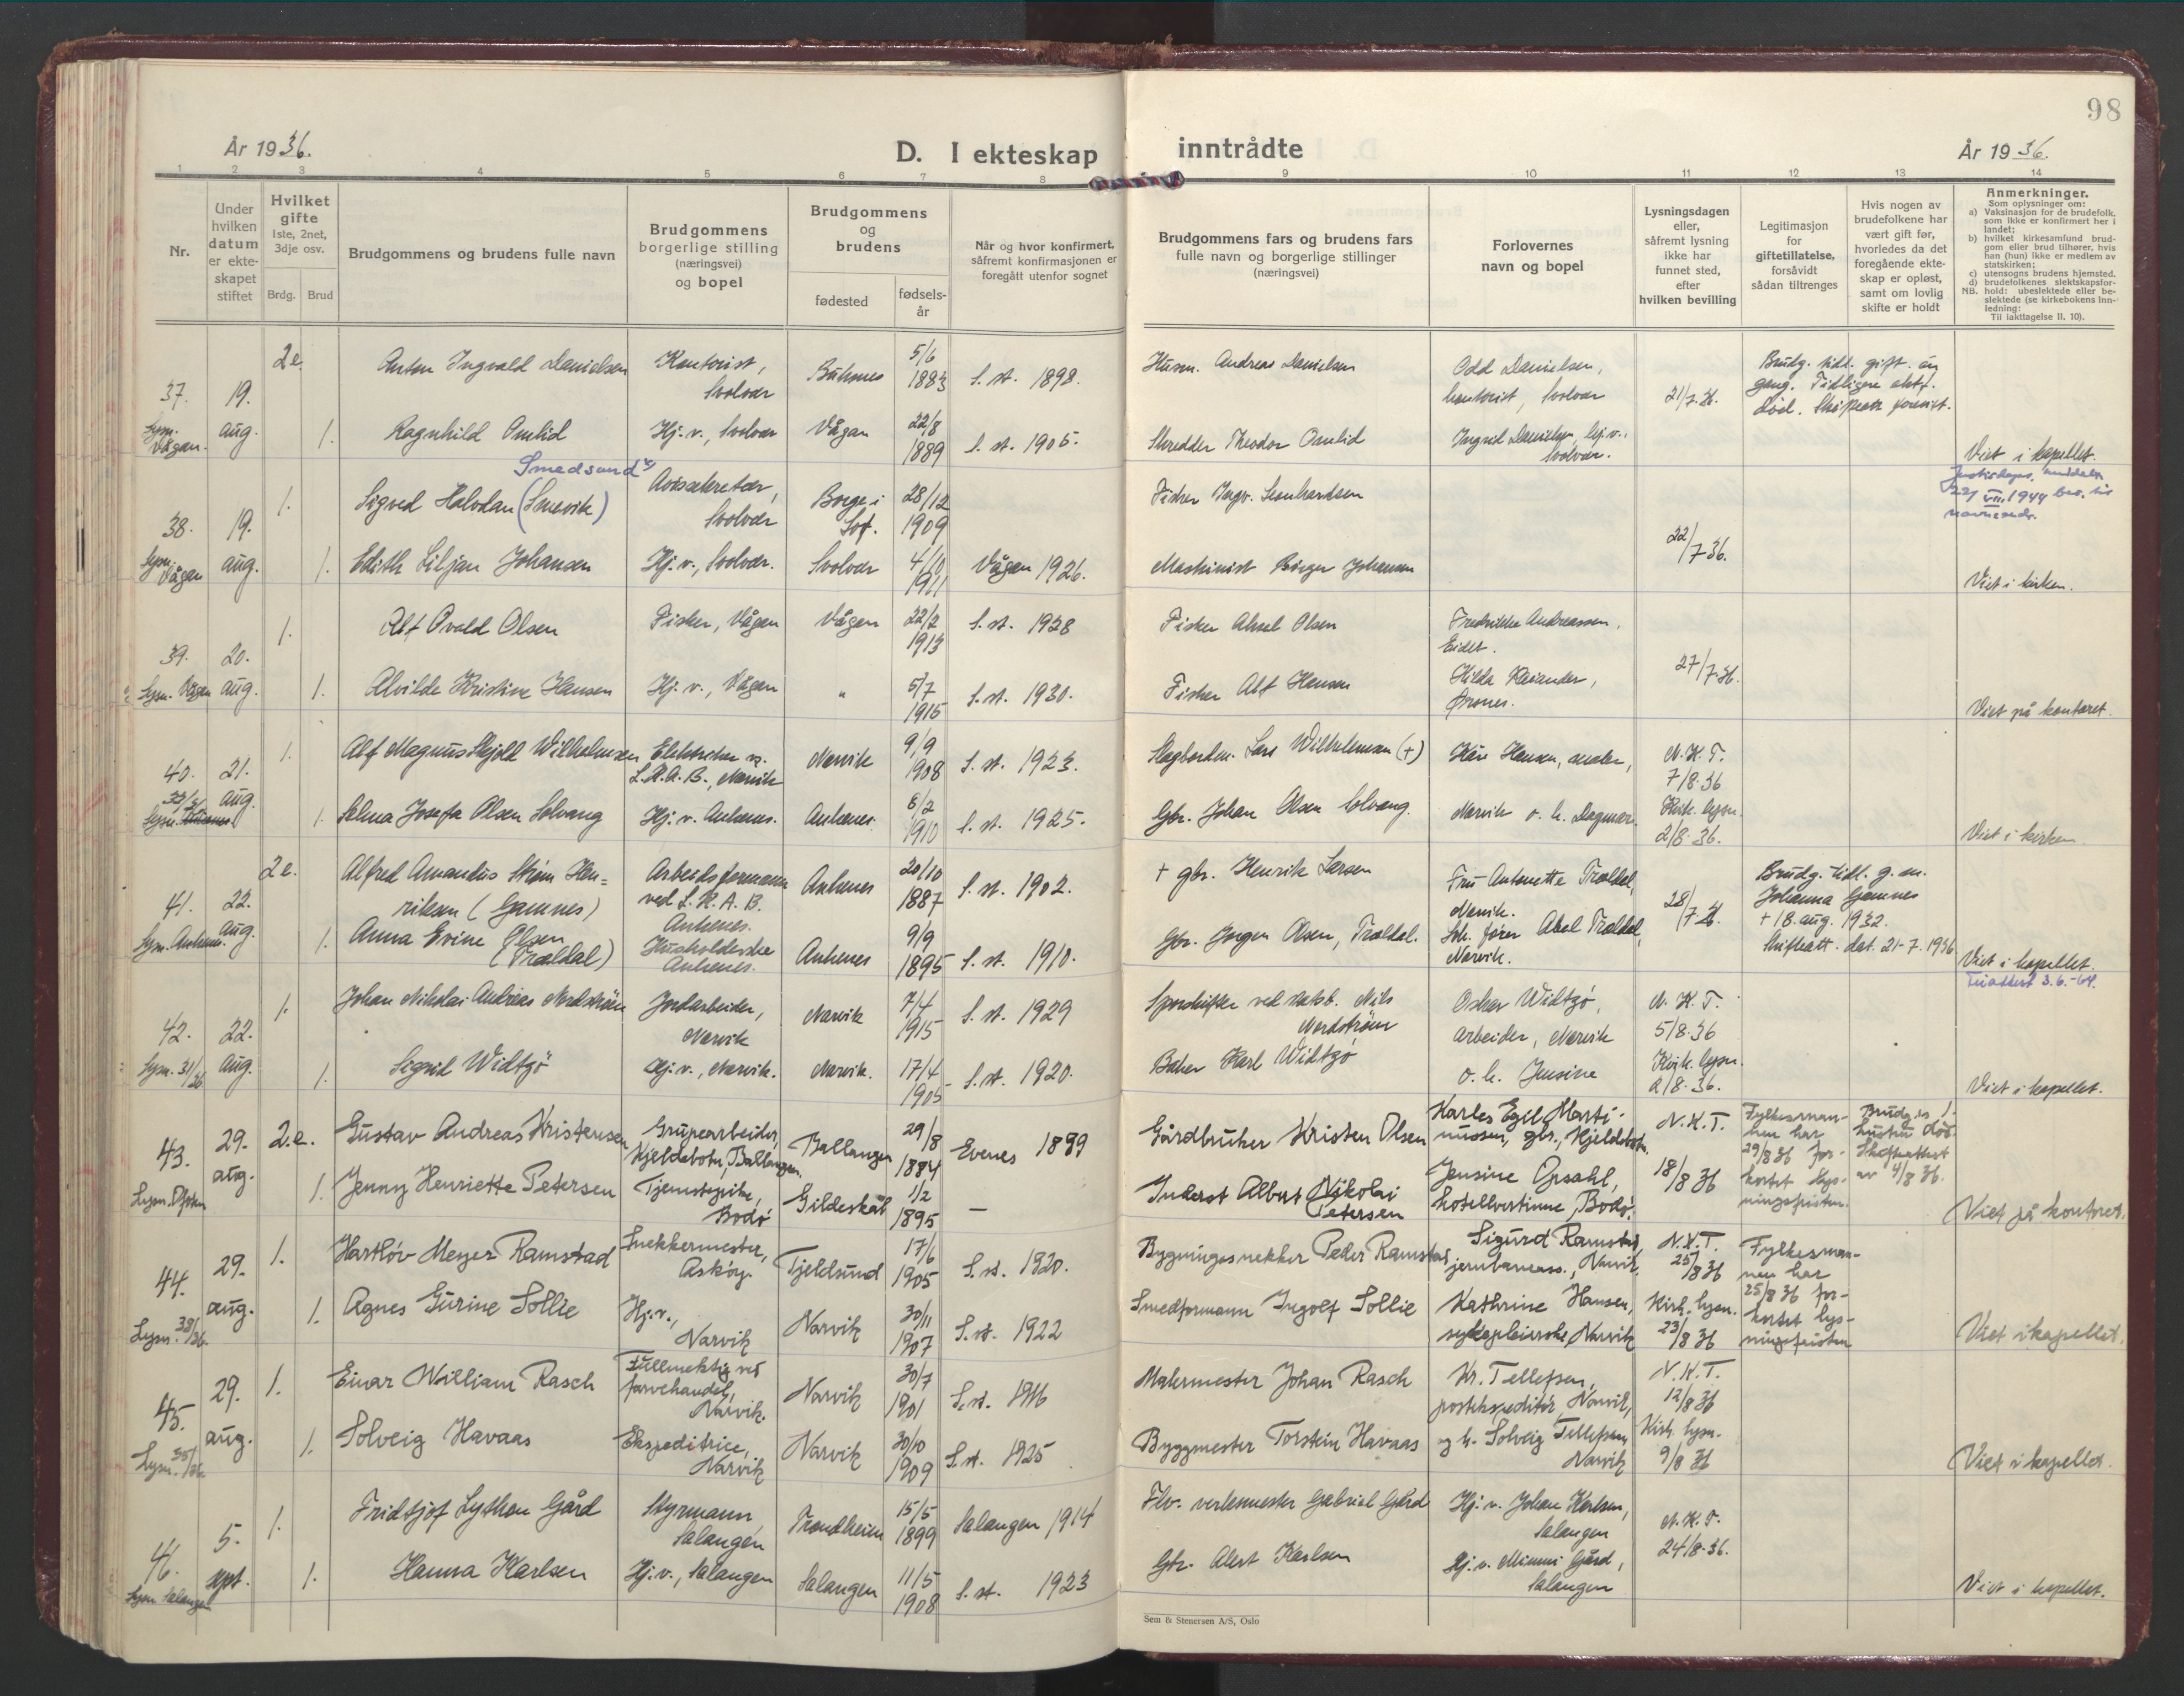 98
År 1936.
D. I ekteskap inntrådte
År 1936.
1 2 3 4 5 6 7 8 9 10 11 12 13 14
Nr.
Under hvilken datum er ekteskapet stiftet
Hvilket gifte
1ste, 2net, 3dje osv.
Brdg. Brud
Brudgommens og brudens fulle navn
Brudgommens borgerlige stilling (næringsvei) og bopel
Brudgommens og brudens
fødested
fødsels-år
Når og hvor konfirmert, såfremt konfirmasjonen er foregått utenfor sognet
Brudgommens fars og brudens fars fulle navn og borgerlige stillinger (næringsvei)
Forlovernes navn og bopel
Lysningsdagen eller, såfremt lysning ikke har funnet sted, efter hvilken bevilling
Legitimasjon for giftetillatelse, forsåvidt sådan tiltrenges
Hvis nogen av brudefolkene har vært gift før, hvorledes da det foregående ekteskap er opløst, samt om lovlig skifte er holdt
Anmerkninger.
Som oplysninger om:
a) Vaksinasjon for de brudefolk, som ikke er konfirmert her i landet;
b) hvilket kirkesamfund brudgom eller brud tilhører, hvis han (hun) ikke er medlem av statskirken;
c) utensogns brudens hjemsted.
d) brudefolkenes slektskapsforhold: ubeslektede eller beslektede (se kirkebokens Innledning:
NB. Til iakttagelse II. 10).
37. 19. aug. 2e. Anton Ingvald Danielsen Kontorist, Svolvær 5/6 1883 S. st. 1898. Husm. Andreas Danielsen Odd Danielsen, kontorist, Svolvær 21/7.36. Brudg. tidl. gift en gang. Tidligere ektef. død.
Lysn. Vågan. 1. Ragnhild Omlid Hj. v., Svolvær Vågan 22/8 1889 S. st. 1905. Skredder Theodor Omlid Ingrid Danielsen, hj. v., Svolvær. Viet i kapellet.
Smedsund
38. 19. aug. 1. Sigved Halvdan (Smevik) Avissekretær, Svolvær Borge i Lof. 28/12 1909 Fisker Ingv. Leonhardsen 22/7 36.
1944
Lysn. Vågan 1. Edith Liljan Johansen Hj. v., Svolvær. Svolvær 4/10 1911 Vågan 1926. Maskinist Birger Johansen Viet i kirken.
39. 20. aug. 1. Alf Ovald Olsen Fisker, Vågan Vågan 22/2 1913 S. st. 1928 Fisker Aksel Olsen Fredrikke Andreassen, Eidet. 27/7.36.
Lysn. Vågan 1. Alvilde Kristine Hansen Hj. v., Vågan " 5/7 1915 S. st. 1930. Fisker Alf Hansen Hilda Kaiander, Ørsnes. Viet på kontoret.
40. 21. aug. 1. Alf Magnus Skjold Wilhelmsen Elektriker v. L.K.A.B., Narvik Narvik 9/9 1908 S. st. 1923. Lars Wilhelmsen (+) Kåre Hansen, maler, N.K.T. 7/8.36
Lysn. 1. Selma Josefa Olsen Solvang Hj. v. Ankenes. Ankenes. 8/2 1910 S. st. 1925. Gbr. Johan Olsen Solvang. Narvik o. h. Dagmar. Kirk. lysn. 2/8.36. Viet i kirken.
41. 22. aug. 2e. Alfred Amandus Strøm Henriksen (Gamnes) Arbeidsformann ved L.K.A.B. Ankenes. Ankenes 20/10 1887 S. st. 1902. + gbr. Henrik Larsen Fru Antonette Traldal, Narvik. 28/7.36. Brudg. tidl. g. m. Johanna Gamnes + 18. aug. 1932. Skifteatt. dat. 21-7. 1936
Lysn. Ankenes. 1. Anna Evine Olsen (Traldal) Husholderske Ankenes. Ankenes 9/9 1895 S. st. 1910. Gbr. Jørgen Olsen, Traldal. Abel Traldal, Narvik. Viet i kapellet.
3.6.-64.
42. 22. aug. 1. Johan Nikolai Andreas Nordstrøm Jordarbeider, Narvik Narvik 7/4 1915 S. st. 1929 Sporskifter ved statsb. Nils Nordström Oskar Widtzø, arbeider, Narvik N.K.T. 5/8.36
Lysn. 31/36 1. Sigrid Widtzö Hj. v., Narvik. Narvik. 17/4 1905 S. st. 1920. Baker Karl Widtzø o. h. Jensine Kirk. lysn. 2/8.36. Viet i kapellet.
43. 29. aug. 2.e. Gustav Andreas Kristensen Grupearbeider, Kjeldebotn, Ballangen Ballangen 29/8 1884 Evenes 1899 Gårdbruker Kristen Olsen Karles Egil Martinussen, gbr., Kjeldebotn. N.K.T. 18/8 36 Fylkesmannen har 29/8 36 forkortet lysningsfristen. Brudg.s 1. hustru død. Skifteattest av 4/8 36.
Lysn. Ofoten 1. Jenny Henriette Petersen Tjenestepike, Bodø Gildeskål 1/2 1895 — Inderst Albert Nikolai Petersen Jensine Opsahl, hotellvertinne, Bodø. Viet på kontoret.
44. 29. aug. 1. Hartløv Meyer Ramstad Snekkermester, Askøy. Tjeldsund 17/6 1905 S. st. 1920. Bygningssnekker Peder Ramstad Sigurd Ramstad jernbaneass., Narvik. N.K.T. 25/8 36 Fylkesmannen har 25/8 36 forkortet lysningsfristen
Lysn. 1. Agnes Gurine Sollie Hj. v., Narvik Narvik 30/11 1907 S. st. 1922 Smedformann Ingolf Sollie Kathrine Hansen, sykepleierske, Narvik Kirk. lysn. 23/8 36 Viet i kapellet.
45. 29. aug. 1. Einar William Rasch Fullmektig ved farvehandel, Narvik. Narvik 30/7 1901 S. st. 1916 Malermester Johan Rasch Kr. Tellefsen, postekspeditør, Narvik, N.K.T. 12/8 36
Lysn. 35/36 1. Solveig Havaas Ekspeditrice, Narvik Narvik 30/10 1909 S. st. 1925 Byggmester Torstein Havaas og h. Solveig Tellefsen Narvik Kirk. lysn. 9/8 36 Viet i kapellet.
46. 5. sept. 1. Fridtjof Lython Gård Styrmann Salangen Trondheim 15/5 1899 Salangen 1914 Flv. verksmester Gabriel Gård Hj. v. Johan Karlsen, Salangen N.K.T. 24/8.36.
Lysn Salangen 1. Hanna Karlsen Hj. v., Salangen Salangen 11/5 1908 S. st. 1923 Gbr. Albert Karlsen Hj. v. Mimmi Gård, Salangen Viet i kapellet.
Sem & Stenersen A/S, Oslo